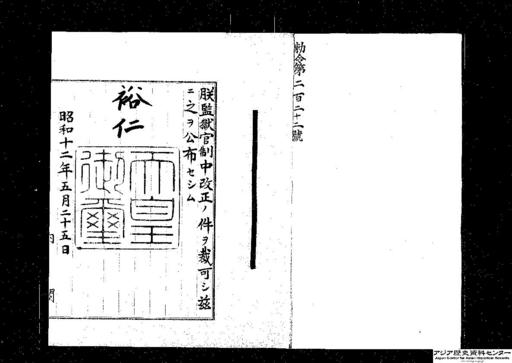 勅令第二百二十二號
朕監獄官制中改正ノ件ヲ裁可シ茲
ニ之ヲ公布セシム
裕仁
天皇御璽
昭和十二年五月二十五日
内閣
アジア歴史資料センター
Japan Center for Asian Historical Records